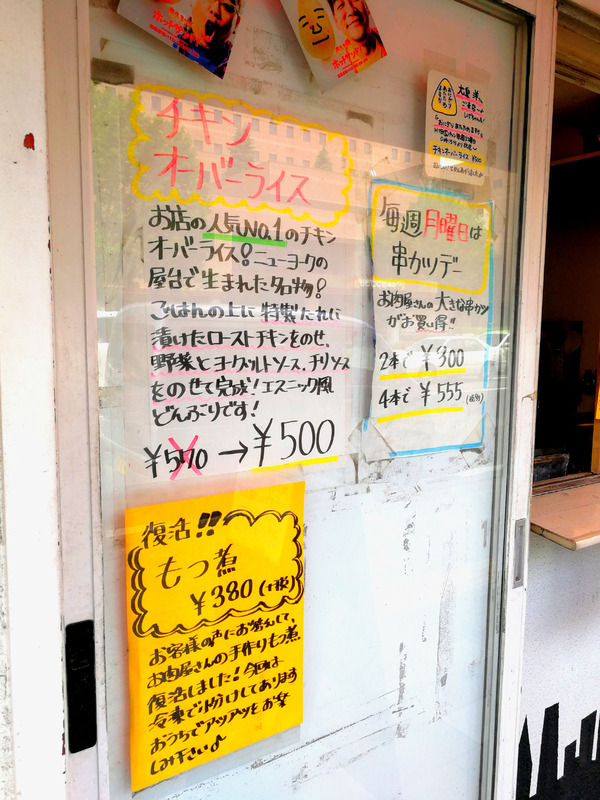 ホットサンド
ホットサンド
チキン
オーバーライス
お店の人気No.1のチキン
オーバーライス!ニューヨークの
屋台で生まれた名物!
ごはんの上に特製たれに
漬けたローストチキンをのせ、
野菜とヨーグルトソース、チリソース
をのせて完成!エスニック風
どんぶりです!
¥570→¥500
毎週月曜日は
串カツデー
お肉屋さんの大きな串カツ
がお買い得!!
2本で ¥300
4本で ¥555(税別)
チキンオーバーライス ¥500
復活!!
もつ煮
¥380(+税)
お客様の声にお答えして、
お肉屋さんの手作りもつ煮
復活しました!今回は
冷凍で小分けしてあります
おうちでアツアツをお楽
しみ下さい♪